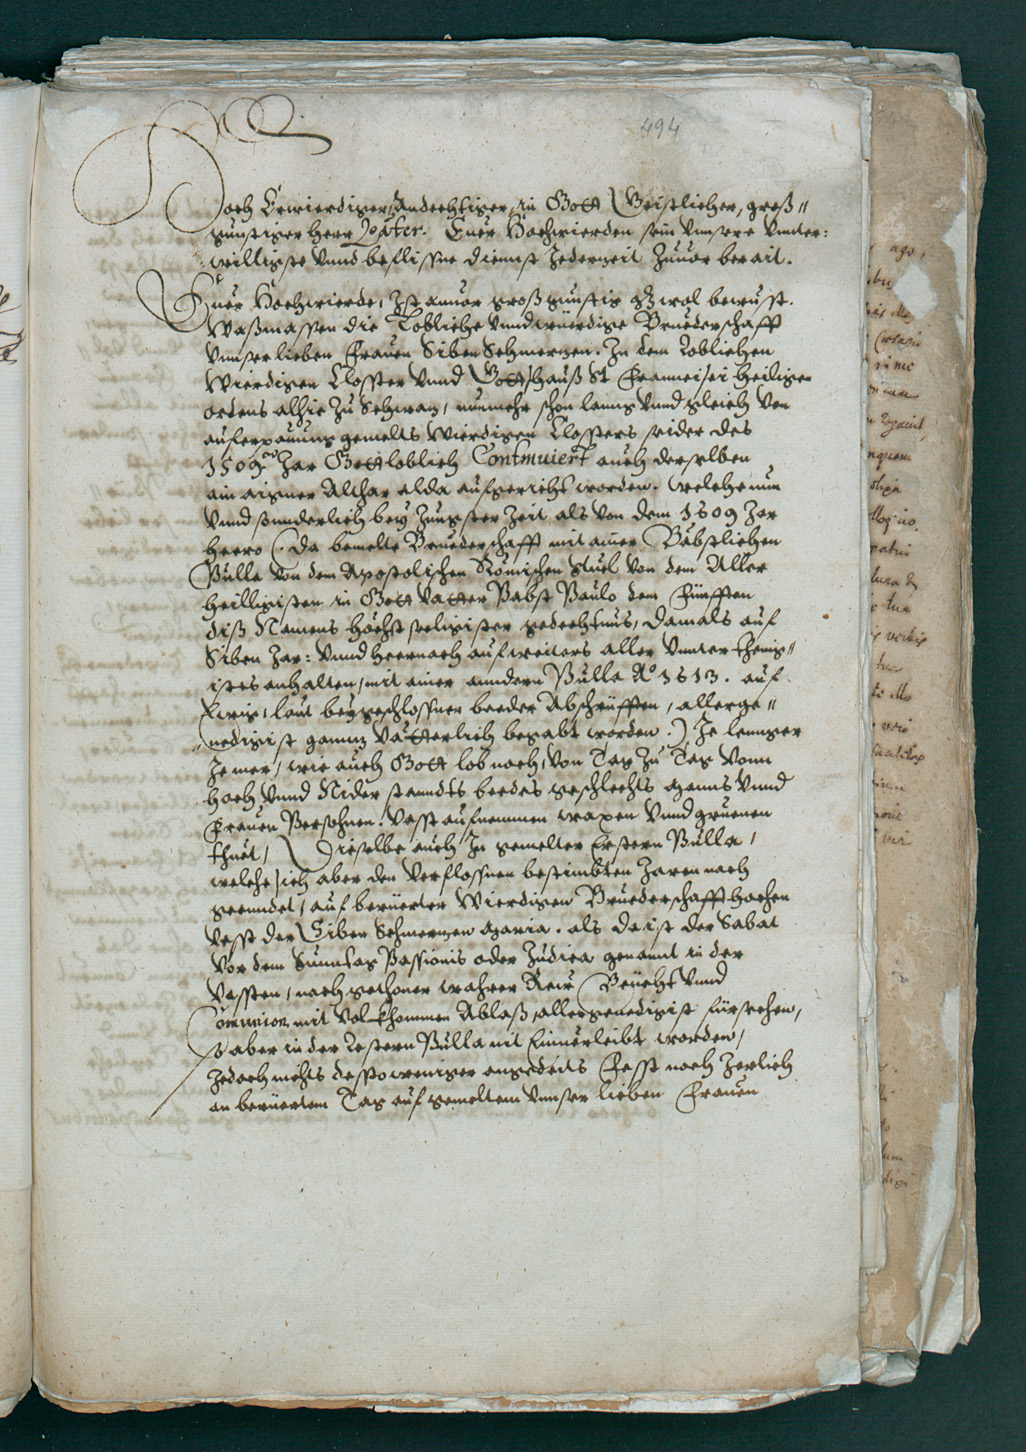 494
Hoch Erwierdiger, Andechtiger, in Gott Geistlicher, groß„
günstiger Herr Pater. Euer Hochwierden sein vnnsere vnnder:
willigste vnnd beflissne diennst Jederzeit Zuuor berait.
Euer Hochwierde, Ist zuuor großgünstig wol bewusst.
Waßmassen die Lobliche vnnd würdige Bruederschafft
vnnser lieben Frauen Siben Schmerzen. In dem Loblichen
Wierdigen Closster vnnd Gottshauß St Francisci heiligen
ordens alhie Zu Schwaz, nunmehr schon lanng vnnd gleich von
auferpauung gemelts Wierdigen Clossters seider des
1509 Jar Gott loblich Continuiert auch derselben
ain aigner Althar alda aufgericht worden. welche nun
vnnd sonnderlich bey Jungster Zeit als von dem 1609 Jar
heero (. Da bemelte Bruederschafft mit ainer Bäbstlichen
Bulla von dem Apostolischen Römischen stuel von dem Aller
heilligisten in Gott Vatter Pabst Paulo dem Fünfften
diß Namens höchst seeligister gedechtnus, damals auf
Siben Jar: vnnd heernach auf weiters aller vnnderthenig„
istes anhalten, mit ainer anndern Bulla Aº 1613. auf
Ewig, laut beygeschlossner beeder Abschrüfften, allerge„
„nedigist gannz vätterlich begabt worden.) Je lennger
Je mer, wie auch Gott lob noch, von Tag Zu Tag vonn
hoch vnnd Nider stanndts beedes geschlechts Manns vnnd
Frauen Persohnen. vasst aufnemmen waxen vnnd gruenen
thuet, Dieselbe auch In gemelter Erstern Bulla,
welche sich aber den verflossnen bestimbten Jaren nach
geenndet, auf berüerter Wierdigen Bruederschafft hochen
Fesst der Siben Schmerzen Maria. als da ist der Sabat
vor dem Sunntag Passionis oder Judica genannt in der
Vassten, nach gethoner wahrer Reü Beücht vnnd
Comunion mit volkhommen Ablaß, allergenedigist fürsechen,
so aber in der Lestern Bulla nit Einuerleibt worden,
Jedoch nichts desstoweniger angedeüts Fesst noch Järlich
an berüertem Tag auf gemeltem vnnser lieben Frauen